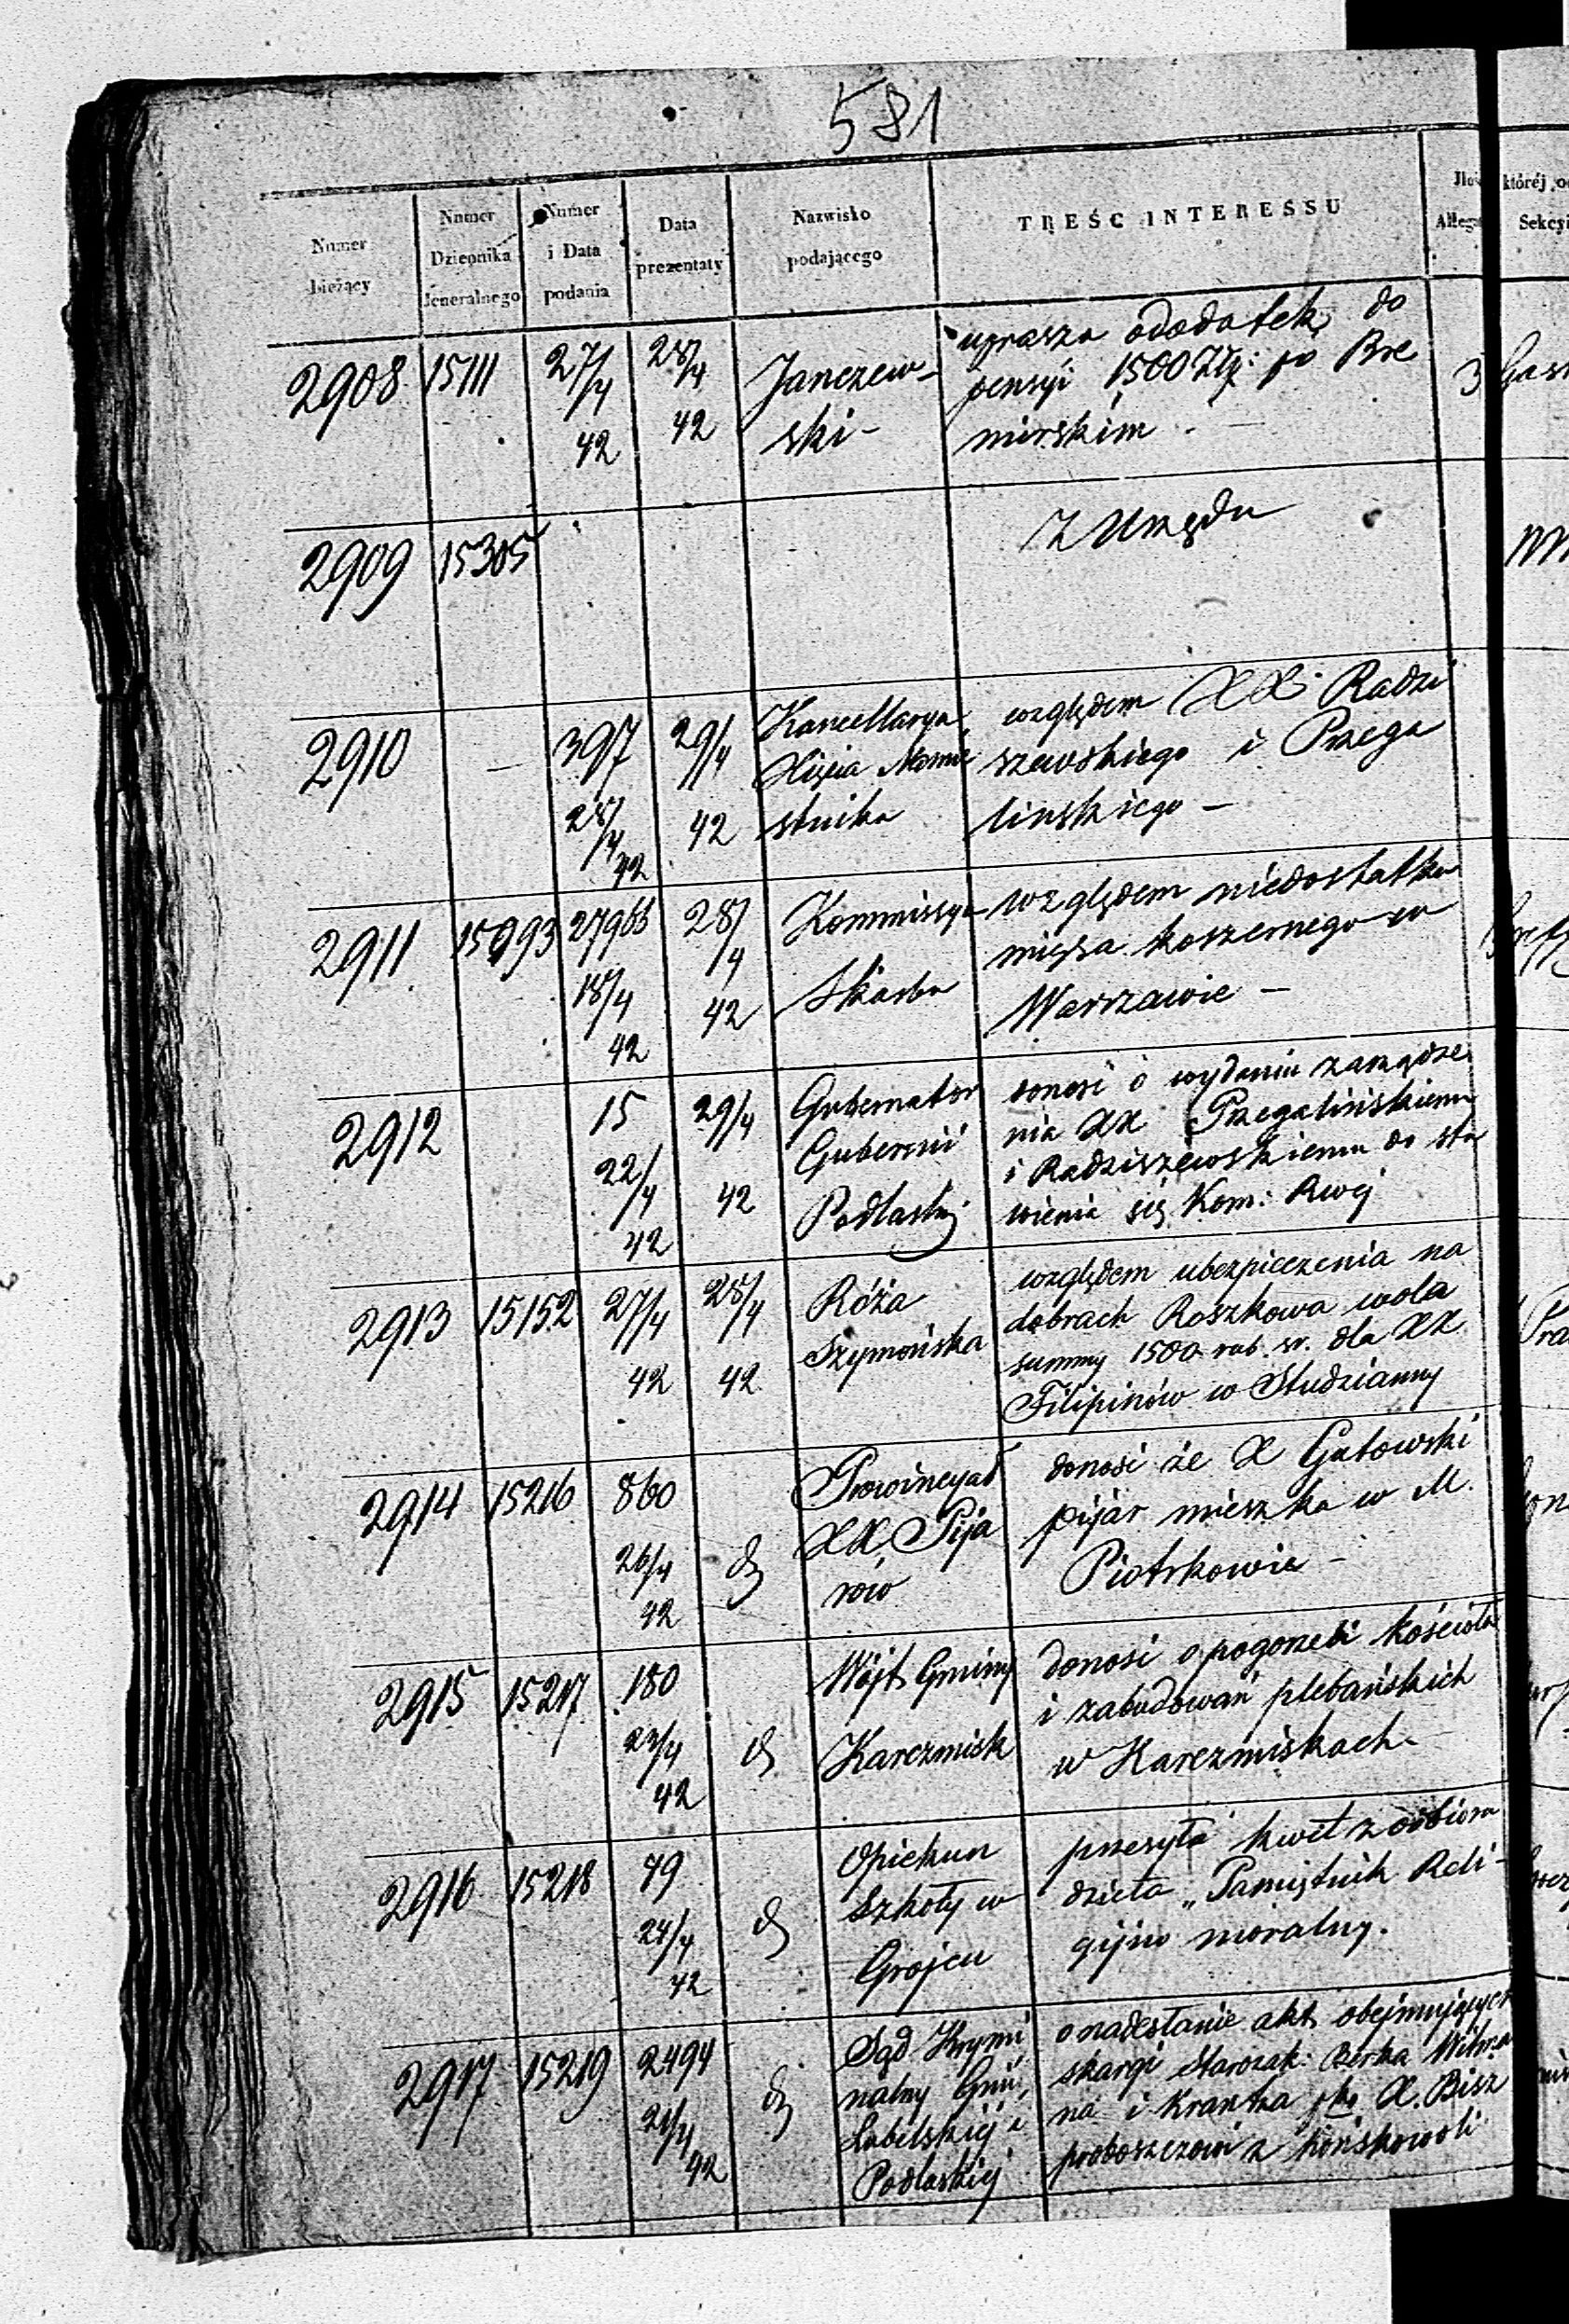 581
Numer bieżący
Numer Dziennika Jeneralnego
Numer i Data podania
Data prezentaty
Nazwisko podającego
TREŚĆ INTERESSU
której
Sekcyi
2908 15111 27/4 42 28/4 42 Janczew-
ski-
uprasza o dodatek do
pensyi 1500 Złp: po Bre
mirskim.
3
2909 15305 Z Urzędu
2910 — 397 28/4 42 29/4 42 Kancellarya
Xięcia Namie
stnika
względem XX Radzi
szewskiego i Przega
linskiego —
2911 15093 27966 18/4 42 28/4 42 Kommissya
Skarbu
względem niedostatku
mięsa koszernego w
Warszawie —
2912 15 22/4 42 29/4 42 Gubernator
Gubernii
Podlaskiej
donosi o wydaniu zarządze
nia XX Przegalińskiemu
i Radziszewskiemu do sta
wienia się Kom: Rwej
2913 15152 27/4 42 28/4 42 Róża
Szymońska
względem ubezpieczenia na
dobrach Roszkowa wola
summy 1500 rub. sr. dla XX
Filipinów w Studzianny
2914 15216 860 26/4 42 Prowincyał
XX Pija
rów
donosi że X Gutowski
pijar mieszka w M.
Piotrkowie —
2915 15217 180 23/4 42 Wójt Gminy
Karczmisk
donosi o pogorzeli kościoła
i zabudowań plebańskich
w Karczmiskach.
2916 15218 79 24/4 42 Opiekun
Szkoły w
Grojcu
przesyła kwit z odbioru
dzieła „Pamiętnik Reli-
gijno moralny.
2917 15219 2494 21/4 42 Sąd Krymi
nalny Gnii,
Lubelskiej i
Podlaskiej
o nadesłanie akt obejmujących
skargi Starozak: Berka
na i Krantza pko X. Bisz
proboszczowi z Końskowoli